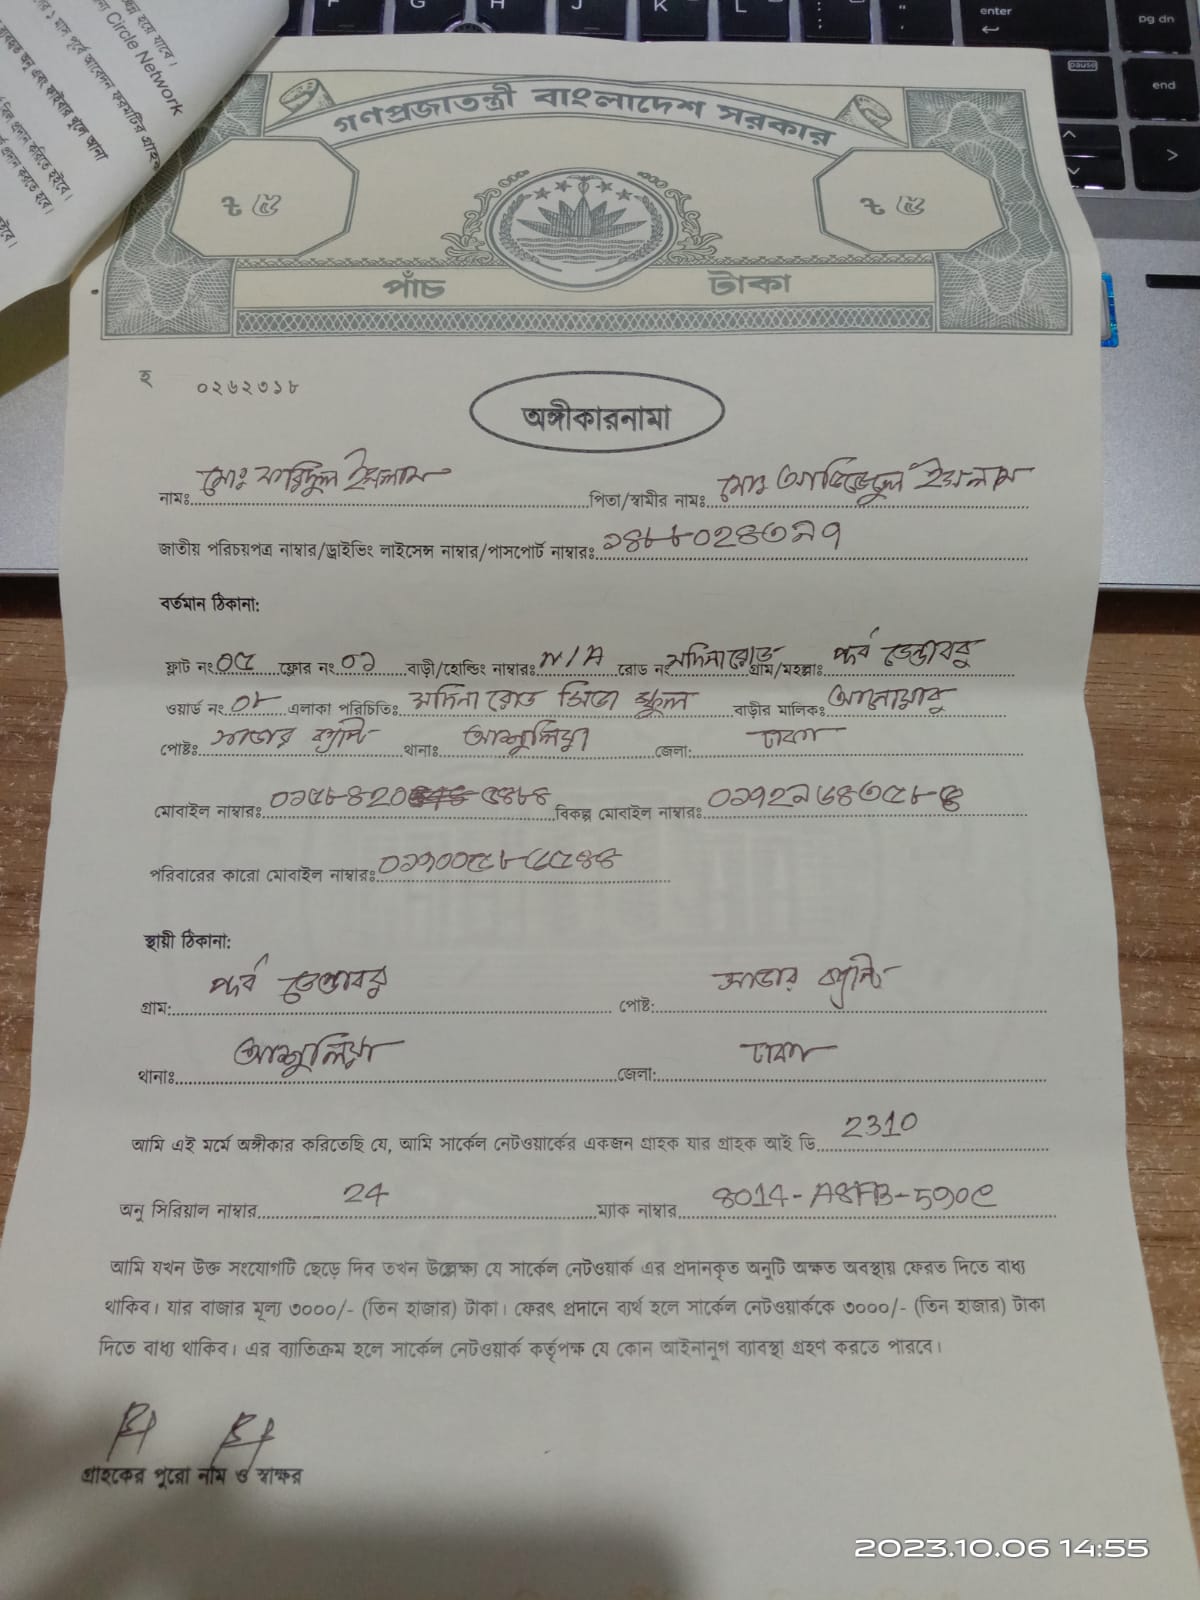 হয়ে যাবে।
১ মাস পূর্বে আবেদন ফরমটির গ্রাহক
Circle Network
অনু এবং ফাইবার খুলে আনা
প্রদান করিতে হইবে।
প্রদান করতে হবে।
F G H J K L
enter
pg dn
pause
end
গণপ্রজাতন্ত্রী বাংলাদেশ সরকার
৳ ৫ ৳ ৫
পাঁচ টাকা
হ ০২৬২৩১৮
অঙ্গীকারনামা
নামঃ মোঃ ফরিদুল ইসলাম পিতা/স্বামীর নামঃ মোঃ আজিজুল ইসলাম
জাতীয় পরিচয়পত্র নাম্বার/ড্রাইভিং লাইসেন্স নাম্বার/পাসপোর্ট নাম্বারঃ
বর্তমান ঠিকানা:
ফ্লাট নং ০৫ ফ্লোর নং ০১ বাড়ী/হোল্ডিং নাম্বারঃ N/A রোড নং মদিনা রোড গ্রাম/মহল্লাঃ পূর্ব
ওয়ার্ড নং ০৮ এলাকা পরিচিতিঃ মদিনা রোড স্কুল বাড়ীর মালিকঃ আনোয়ার
পোষ্টঃ সাভার ক্যান্ট থানাঃ আশুলিয়া জেলা: ঢাকা
মোবাইল নাম্বারঃ বিকল্প মোবাইল নাম্বারঃ
পরিবারের কারো মোবাইল নাম্বারঃ
স্থায়ী ঠিকানা:
গ্রাম: পূর্ব পোষ্ট: সাভার ক্যান্ট
থানাঃ আশুলিয়া জেলা: ঢাকা
আমি এই মর্মে অঙ্গীকার করিতেছি যে, আমি সার্কেল নেটওয়ার্কের একজন গ্রাহক যার গ্রাহক আই ডি 2310
অনু সিরিয়াল নাম্বার 24 ম্যাক নাম্বার 8014-A8FB-590C
আমি যখন উক্ত সংযোগটি ছেড়ে দিব তখন উল্লেক্ষ্য যে সার্কেল নেটওয়ার্ক এর প্রদানকৃত অনুটি অক্ষত অবস্থায় ফেরত দিতে বাধ্য
থাকিব। যার বাজার মূল্য ৩০০০/- (তিন হাজার) টাকা। ফেরৎ প্রদানে ব্যর্থ হলে সার্কেল নেটওয়ার্ককে ৩০০০/- (তিন হাজার) টাকা
দিতে বাধ্য থাকিব। এর ব্যাতিক্রম হলে সার্কেল নেটওয়ার্ক কর্তৃপক্ষ যে কোন আইনানুগ ব্যাবস্থা গ্রহণ করতে পারবে।
গ্রাহকের পুরো নাম ও স্বাক্ষর
2023.10.06 14:55